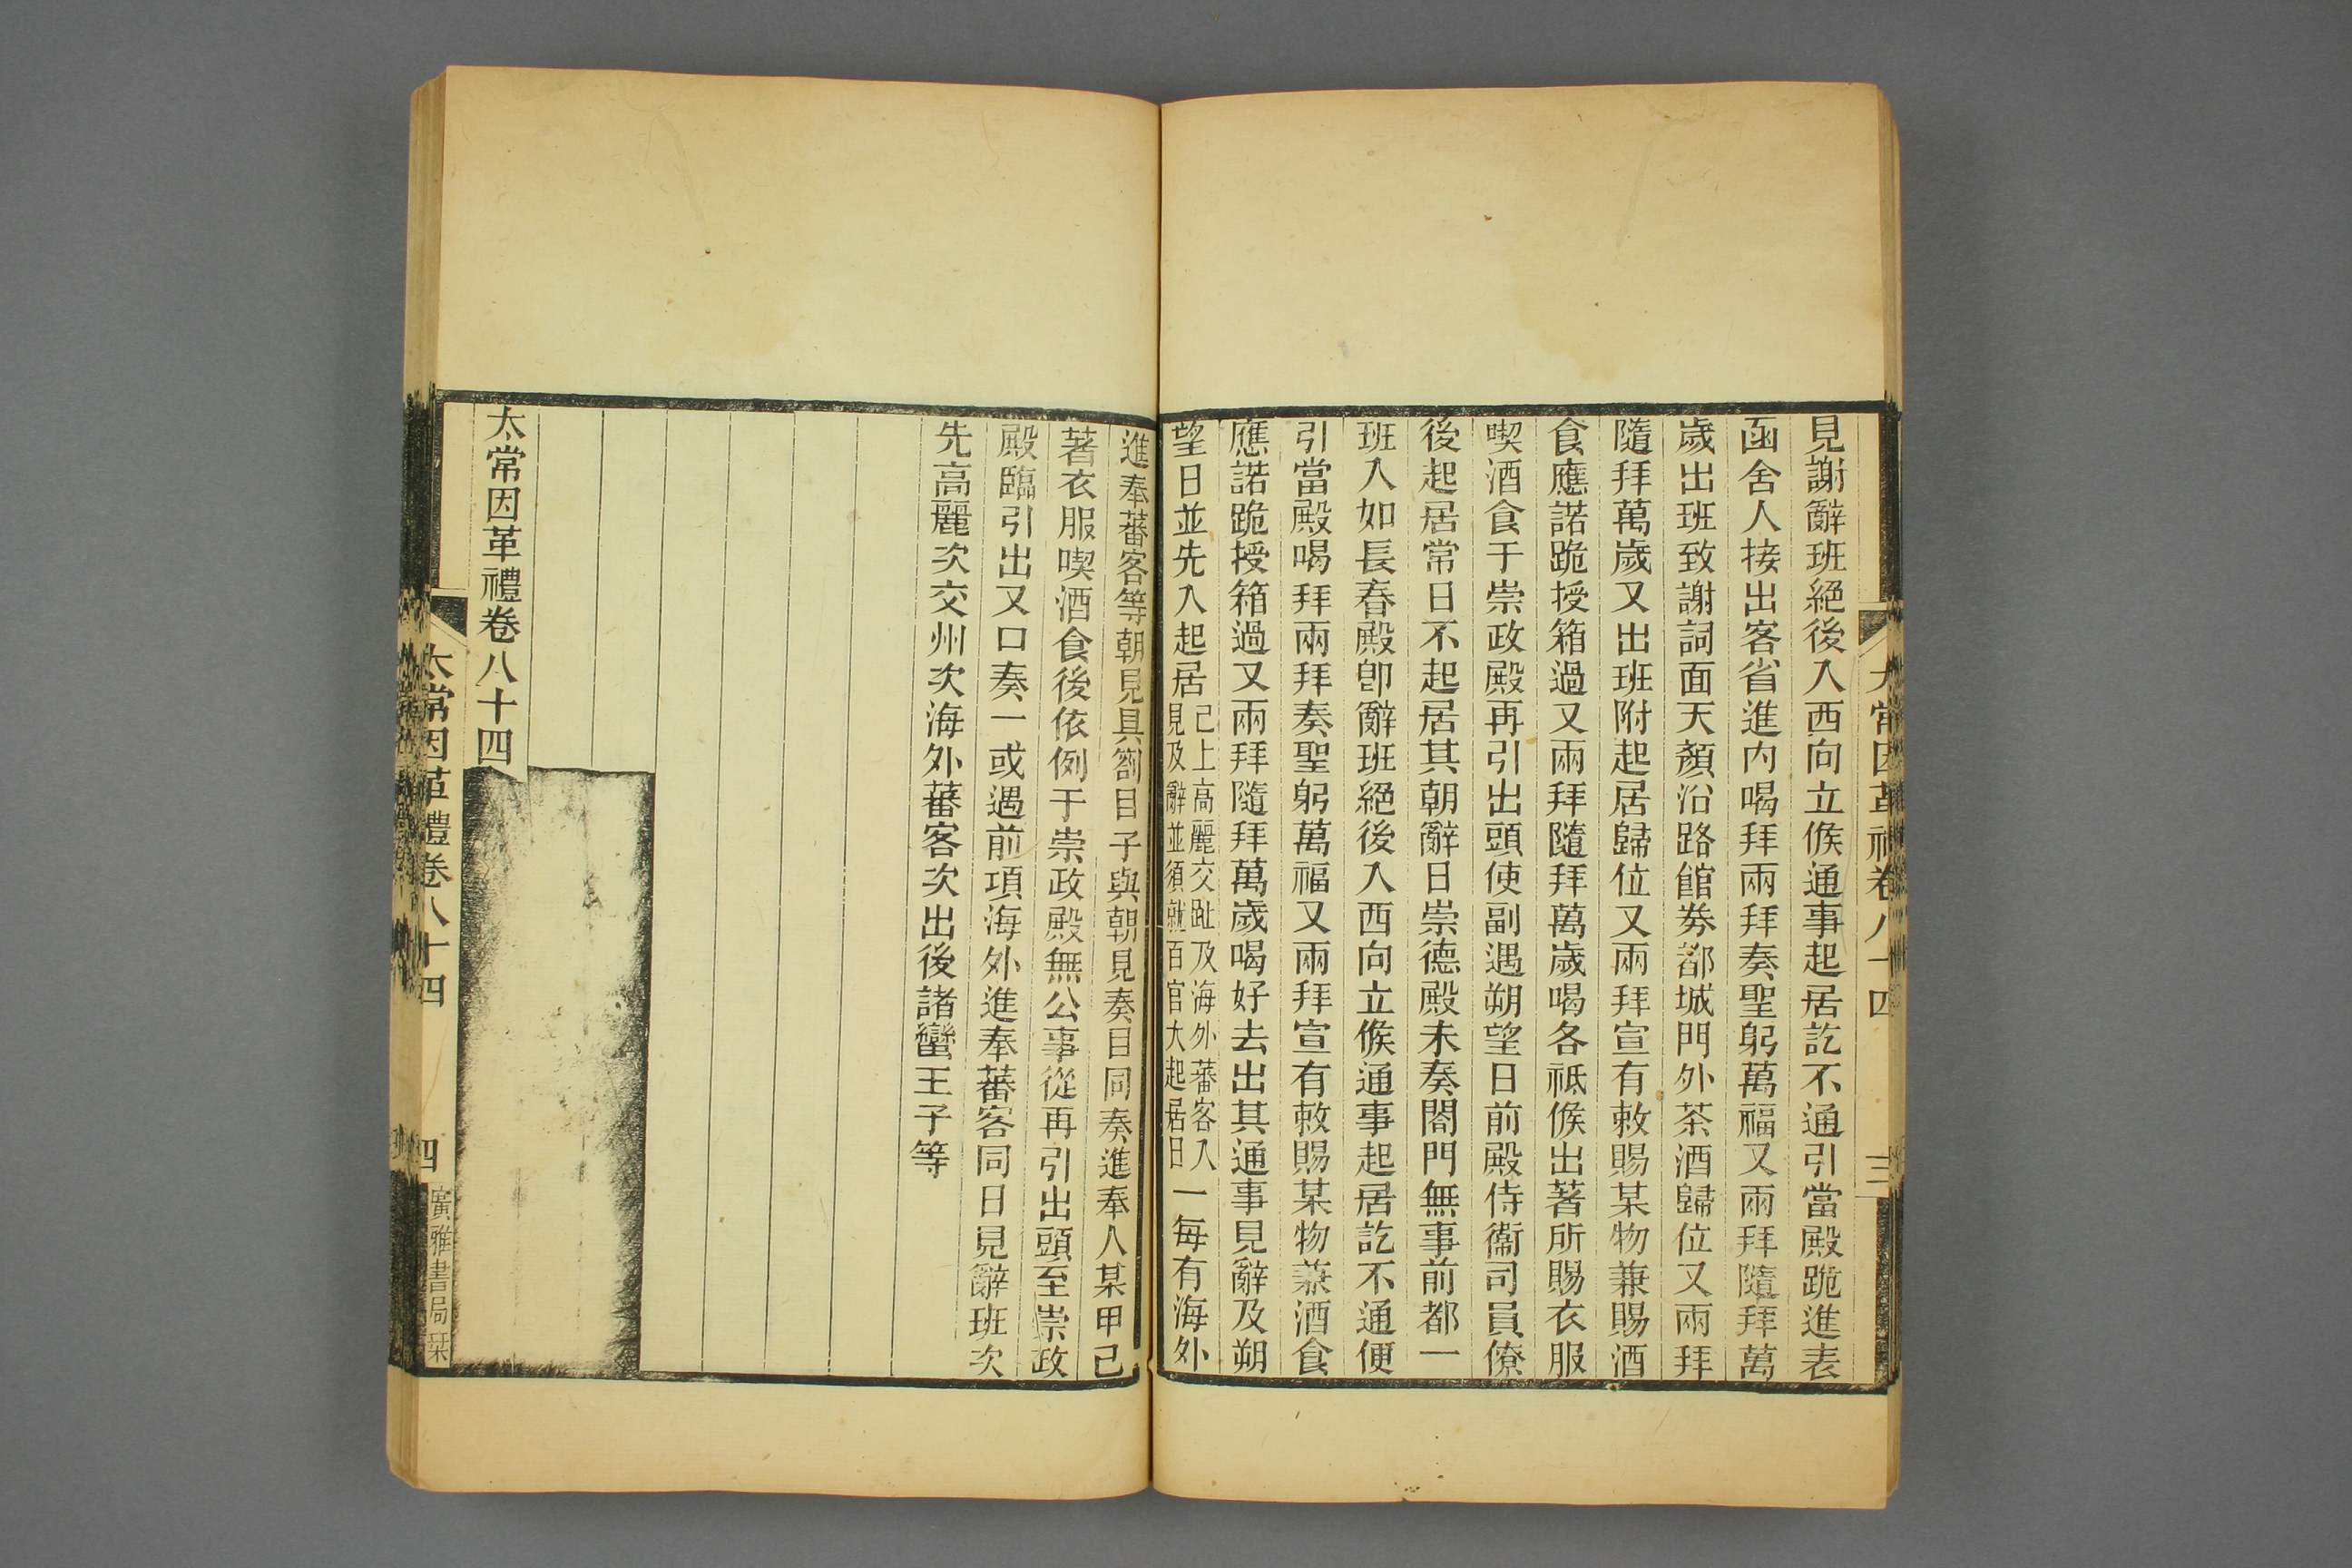 太常因革禮卷八十四
三
見謝辭班絕後入西向立候通事起居訖不通引當殿跪進表
函舍人接出客省進内喝拜兩拜奏聖躬萬福又兩拜隨拜萬
歲出班致謝詞面天顏沿路館券都城門外茶酒歸位又兩拜
隨拜萬歲又出班附起居歸位又兩拜宣有敕賜某物兼賜酒
食應諾跪授箱過又兩拜隨拜萬歲喝各祗候出著所賜衣服
喫酒食于崇政殿再引出頭使副遇朔望日前殿侍衞司員僚
後起居常日不起居其朝辭日崇德殿未奏閤門無事前都一
班入如長春殿卽辭班絕後入西向立候通事起居訖不通便
引當殿喝拜兩拜奏聖躬萬福又兩拜宣有敕賜某物兼酒食
應諾跪授箱過又兩拜隨拜萬歲喝好去出其通事見辭及朔
望日並先入起居已上高麗交趾及海外蕃客入見及辭並須就百官大起居日一每有海外
進奉蕃客等朝見具劄目子與朝見奏目同奏進奉人某甲已
著衣服喫酒食後依例于崇政殿無公事從再引出頭至崇政
殿臨引出又口奏一或遇前項海外進奉蕃客同日見辭班次
先高麗次交州次海外蕃客次出後諸蠻王子等
太常因革禮卷八十四
太常因革禮卷八十四
四
廣雅書局栞